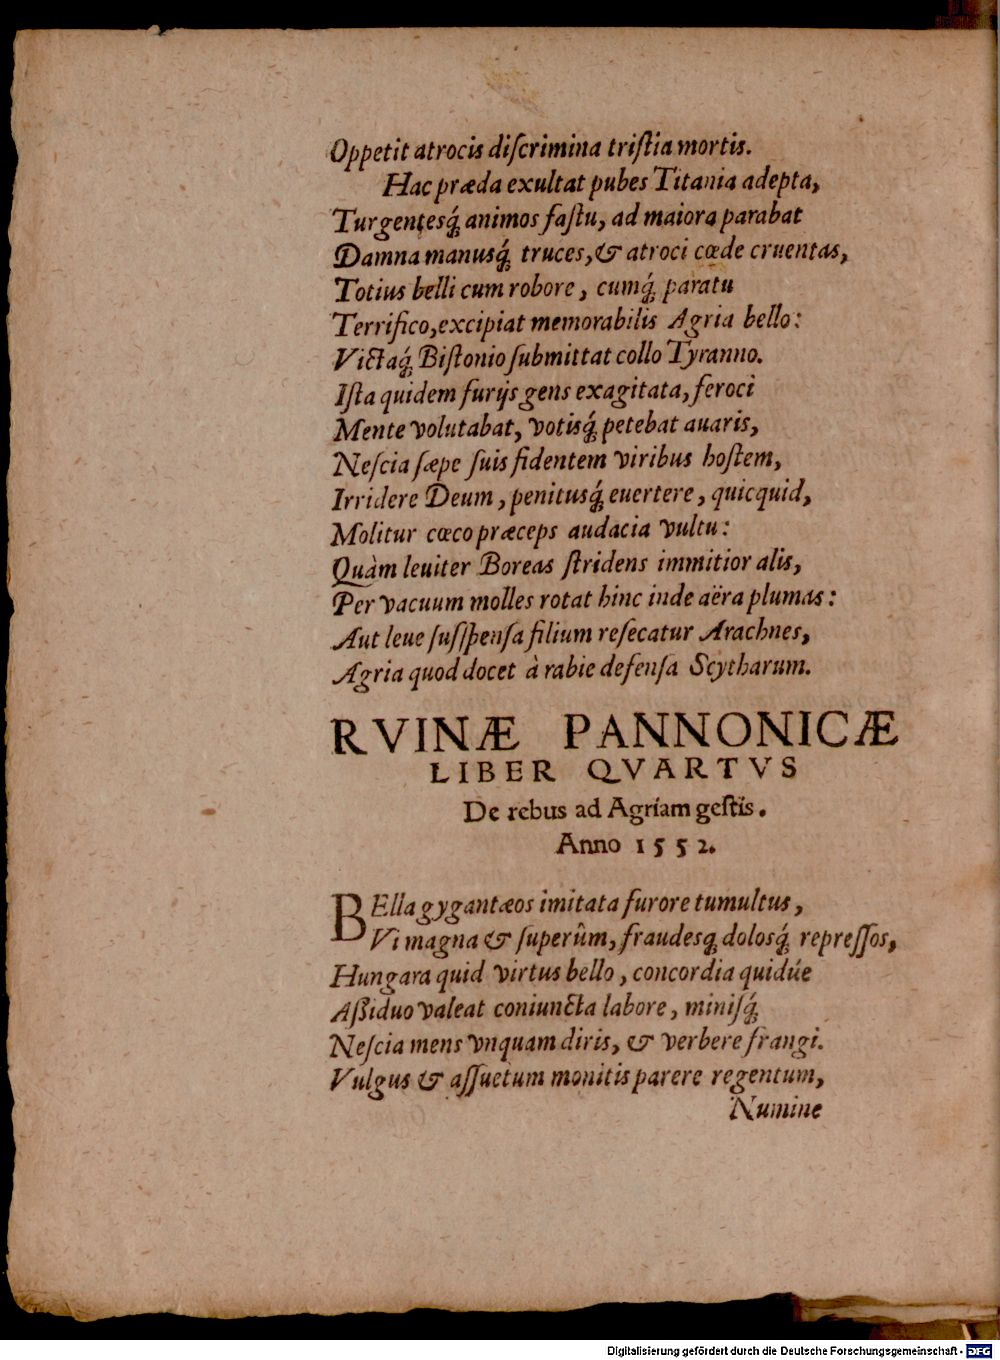 Oppetit atrocis diſcrimina triſtia mortis.
Hac præda exultat pubes Titania adepta,
Turgentesq́; animos faſtu, ad maiora parabat
Damna manusq́; truces, & atroci cæde cruentas,
Totius belli cum robore, cumq́; paratu
Terrifico, excipiat memorabilis Agria bello:
Victaq́; Biſtonio ſubmittat collo Tyranno.
Iſta quidem furijs gens exagitata, feroci
Mente volutabat, votisq́; petebat auaris,
Neſcia ſæpe ſuis fidentem viribus hoſtem,
Irridere Deum, penitusq́; euertere, quicquid,
Molitur cœco præceps audacia vultu:
Quàm leuiter Boreas ſtridens immitior alis,
Per vacuum molles rotat hinc inde aëra plumas:
Aut leue ſuſpenſa filium reſecatur Arachnes,
Agria quod docet à rabie defenſa Scytharum.
RVINÆ PANNONICÆ
LIBER QVARTVS
De rebus ad Agriam geſtis.
Anno 1552.
BElla gygantæos imitata furore tumultus,
Vi magna & ſuperûm, fraudesq; dolosq́; repreſſos,
Hungara quid virtus bello, concordia quidúe
Aſſiduo valeat coniuncta labore, miniſq́;
Neſcia mens vnquam diris, & verbere frangi.
Vulgus & aſſuetum monitis parere regentum,
Numine
Digitalisierung gefördert durch die Deutsche Forschungsgemeinschaft - DFG